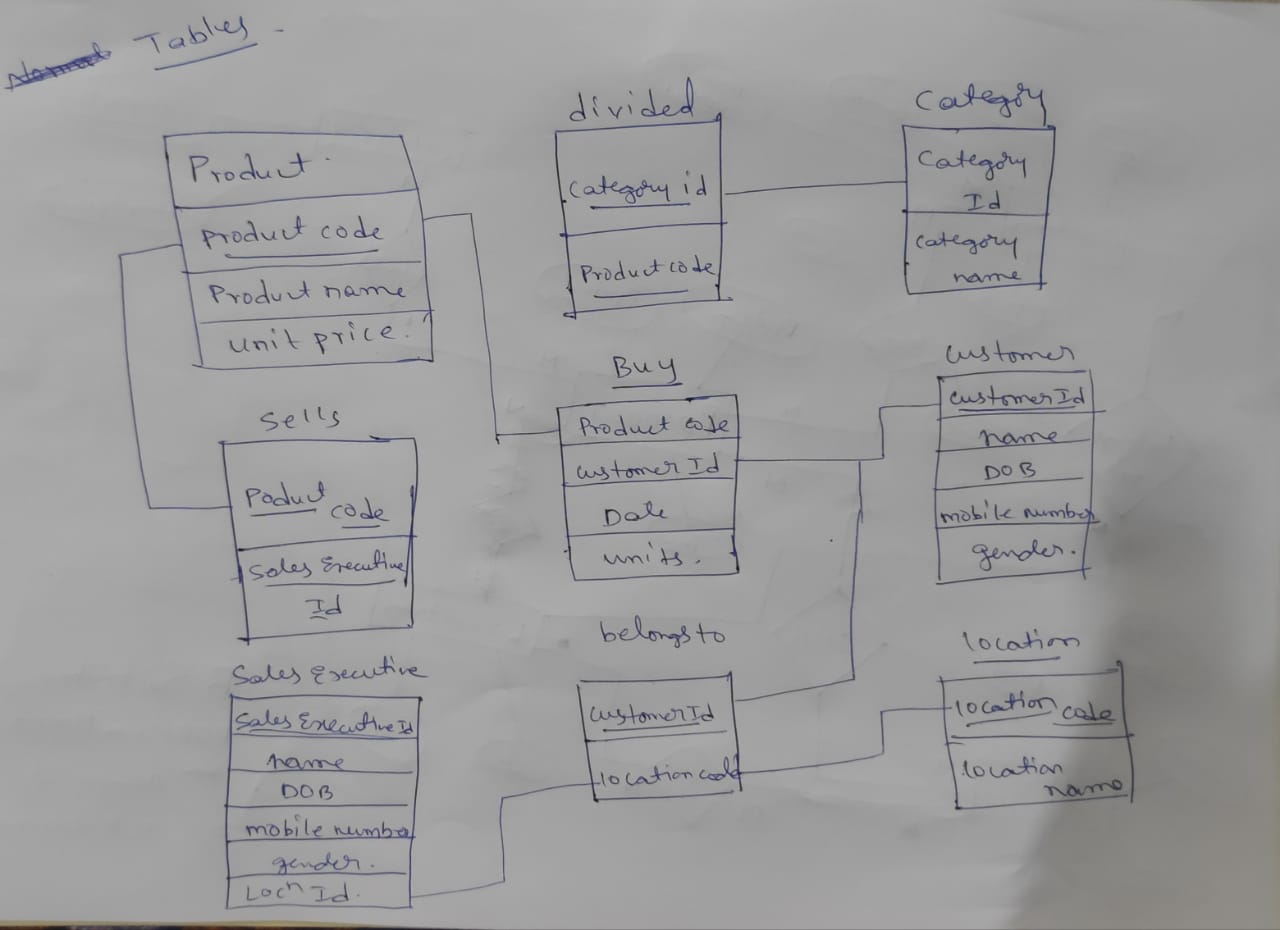 Tables
Product
Product code
Product name
unit price.
divided
category id
Product code
category
category
Id
category
name
Sells
Poduct
code
Sales Executive
Id
Buy
Product code
customer Id
Date
units.
customer
customer Id
name
DOB
mobile number
gender.
Sales Executive
Sales Executive Id
name
DOB
mobile number
gender.
Locn Id.
belongs to
customer Id
location code
location
location code
location
name